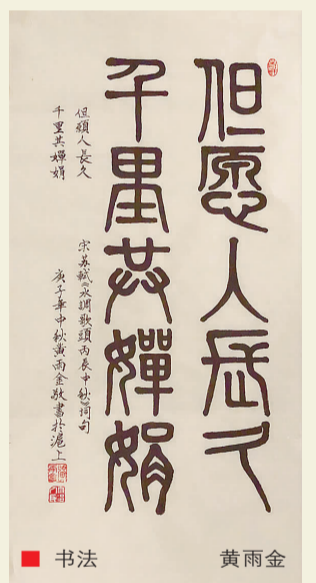 但愿人長久
千里共嬋娟
但願人長久
千里共嬋娟
宋苏轼《水調歌頭丙辰中秋》詞句
庚子年中秋黄雨金敬書於滬上
書法
黄雨金